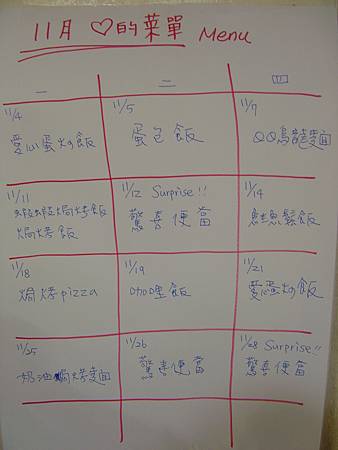 11月 ♡的菜單 Menu
一 二 四
11/4 11/5 11/7
愛心蛋炒飯 蛋包飯 QQ烏龍麵
11/11 11/12 Surprise!! 11/14
蝦蝦焗烤飯 驚喜便當 鮭魚鬆飯
焗烤飯
11/18 11/19 11/21
焗烤pizza 咖哩飯 愛心蛋炒飯
11/25 11/26 11/28 Surprise!!
奶油焗烤麵 驚喜便當 驚喜便當